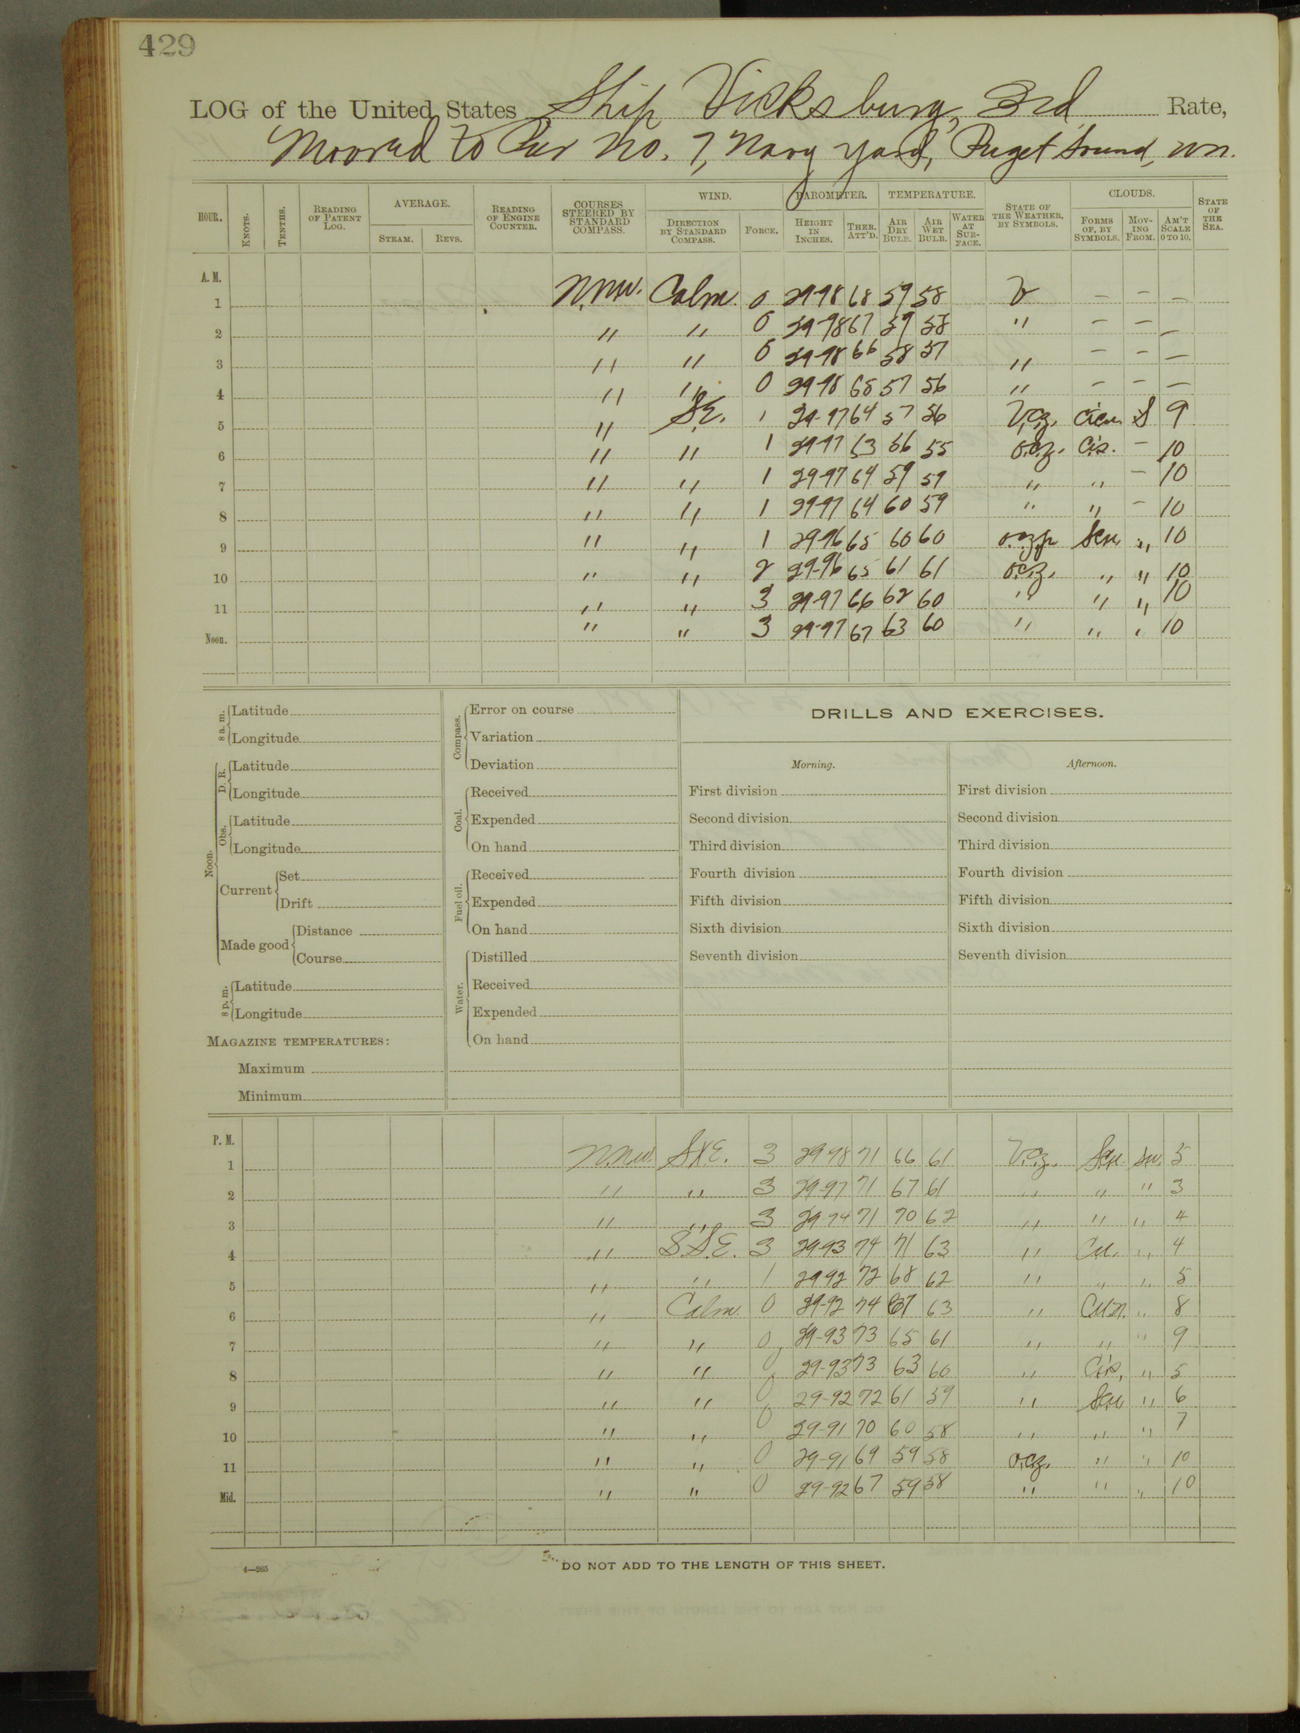 429
LOG of the United States Ship Vicksburg, 3rd Rate,
Moored to Pier No. 7, Navy Yard, Puget Sound, Wn.
HOUR. KNOTS. TENTHS. READING OF PATENT LOG. AVERAGE. STEAM. REVS. READING OF ENGINE COUNTER. COURSES STEERED BY STANDARD COMPASS. WIND. DIRECTION BY STANDARD COMPASS. FORCE. BAROMETER. HEIGHT IN INCHES. THER. ATT'D. TEMPERATURE. AIR DRY BULB. AIR WET BULB. WATER AT SURFACE. STATE OF THE WEATHER, BY SYMBOLS. CLOUDS. FORMS OF, BY SYMBOLS. MOVING FROM. AM'T SCALE 0 TO 10. STATE OF THE SEA.
A.M.
1 N.N.W. Calm. 0 29-98 68 59 58 — — —
2 " " 0 29-98 67 59 58 " — — —
3 " " 0 29-98 66 58 57 " — — —
4 " " 0 29-98 65 57 56 " — — —
5 " S.E. 1 29-97 64 57 56 V.c.z. Ci.cu. S 9
6 " " 1 29-97 63 56 55 o.c.z. Ci.s. — 10
7 " " 1 29-97 64 59 59 " " — 10
8 " " 1 29-97 64 60 59 " " — 10
9 " " 1 29-96 65 60 60 o.c.z.p. S.cu. " 10
10 " " 2 29-96 65 61 61 o.c.z. " " 10
11 " " 3 29-97 66 62 60 " " " 10
Noon. " " 3 29-97 67 63 60 " " " 10
8 a. m. Latitude
Longitude
Noon. D. R. Latitude
Longitude
Obs. Latitude
Longitude
Current Set
Drift
Made good Distance
Course
8 p. m. Latitude
Longitude
MAGAZINE TEMPERATURES:
Maximum
Minimum
Compass. Error on course
Variation
Deviation
Coal. Received
Expended
On hand
Fuel oil. Received
Expended
On hand
Water. Distilled
Received
Expended
On hand
DRILLS AND EXERCISES.
Morning.
First division
Second division
Third division
Fourth division
Fifth division
Sixth division
Seventh division
Afternoon.
First division
Second division
Third division
Fourth division
Fifth division
Sixth division
Seventh division
P. M.
1 N.N.W. SxE. 3 29-98 71 66 61 V.c.z. S.cu. S.W. 5
2 " " 3 29-97 71 67 61 " " " 3
3 " " 3 29-94 71 70 62 " " " 4
4 " S.S.E. 3 29-93 74 71 63 " Cu. " 4
5 " " 1 29-92 72 68 62 " " " 5
6 " Calm. 0 29-92 74 67 63 " Cu.n. " 8
7 " " 0 29-93 73 65 61 " " " 9
8 " " 0 29-93 73 63 60 " Ci.s. " 5
9 " " 0 29-92 72 61 59 " S.cu. " 6
10 " " 0 29-91 70 60 58 " " " 7
11 " " 0 29-91 69 59 58 o.c.z. " " 10
Mid. " " 0 29-92 67 59 58 " " " 10
4—265
DO NOT ADD TO THE LENGTH OF THIS SHEET.